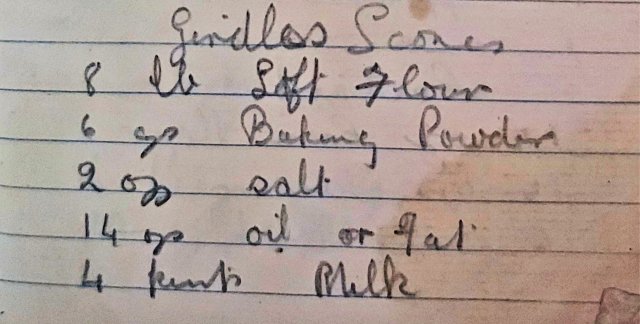 Girdles Scones
8 lb Soft Flour
6 ozs Baking Powder
2 ozs salt
14 ozs oil or fat
4 pints Milk